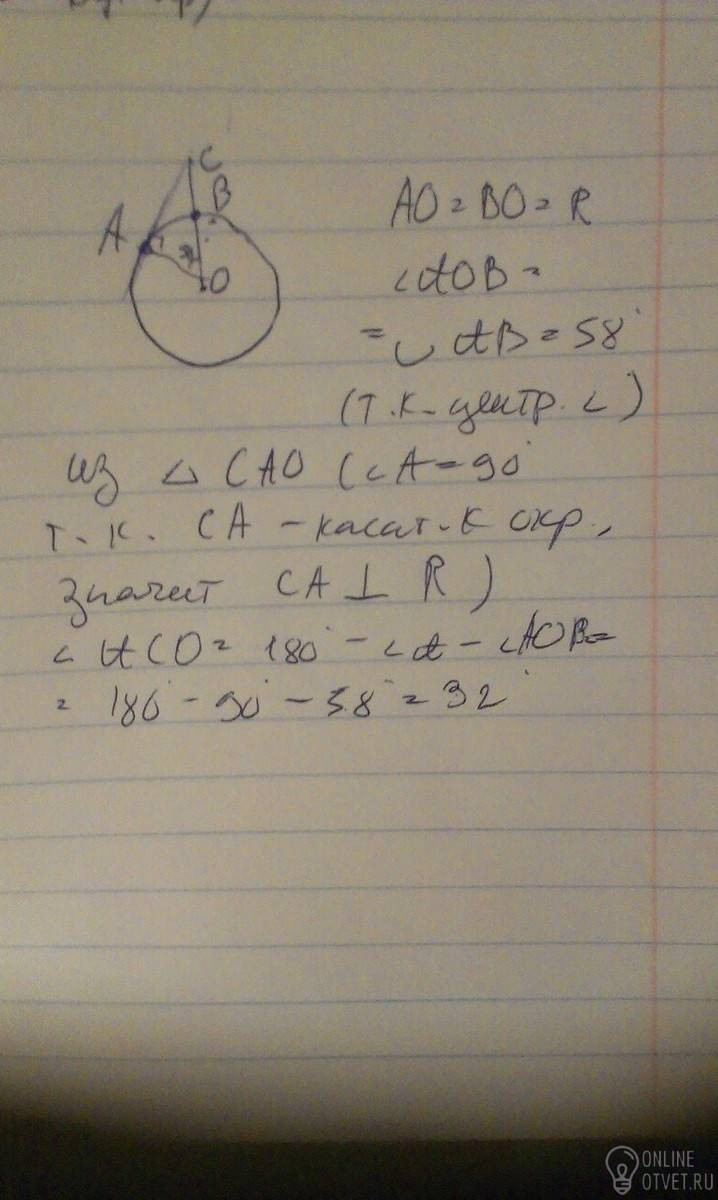 C
B
A
O
AO = BO = R
∠AOB =
= ◡ AB = 58°
(т.к. центр. ∠)
из △ CAO (∠A = 90°
т.к. CA - касат. к окр.,
значит CA ⊥ R)
∠ ACO = 180° - ∠A - ∠AOB =
= 180° - 90° - 58° = 32°
ONLINE
OTVET.RU